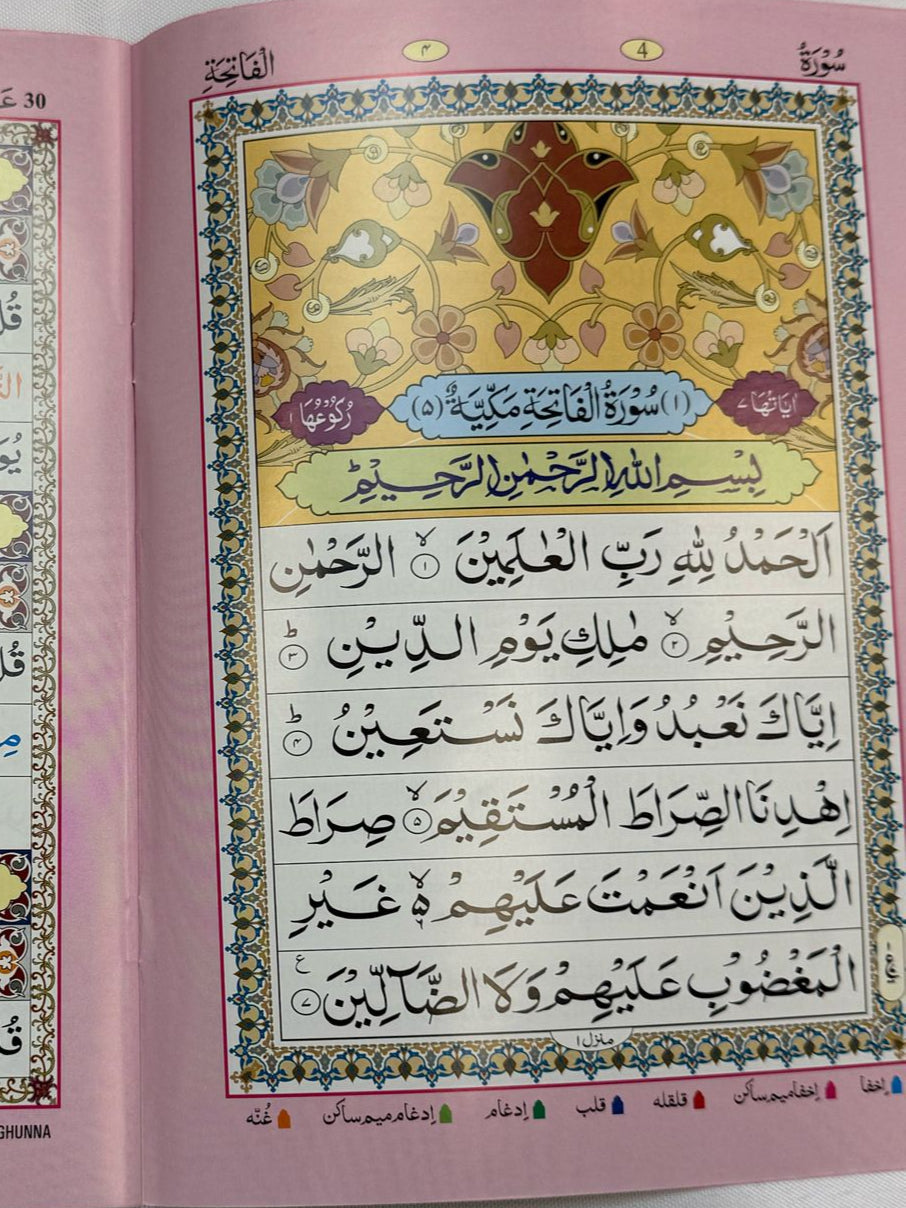 سُوْرَةُ
4
۴
الْفَاتِحَةِ
اٰیَاتُهَا ٧
(١) سُوْرَةُ الْفَاتِحَةِ مَكِّيَّةٌ (٥)
رُكُوْعُهَا ١
بِسْمِ اللّٰهِ الرَّحْمٰنِ الرَّحِيْمِ ؕ
اَلْحَمْدُ لِلّٰهِ رَبِّ الْعٰلَمِيْنَ ۙ ١ الرَّحْمٰنِ
الرَّحِيْمِ ۙ ٢ مٰلِكِ يَوْمِ الدِّيْنِ ؕ ٣
اِيَّاكَ نَعْبُدُ وَاِيَّاكَ نَسْتَعِيْنُ ؕ ۴
اِهْدِنَا الصِّرَاطَ الْمُسْتَقِيْمَ ۙ ۵ صِرَاطَ
الَّذِيْنَ اَنْعَمْتَ عَلَيْهِمْ ۙ۬ ۶ غَيْرِ
الْمَغْضُوْبِ عَلَيْهِمْ وَلَا الضَّآلِّيْنَ ع ٧
منزل ١
إخفا
إخفا ميم ساكن
قلقله
قلب
إدغام
إدغام ميم ساكن
غُنّه
30
قُ
يُو
قُ
مِ
قُ
GHUNNA